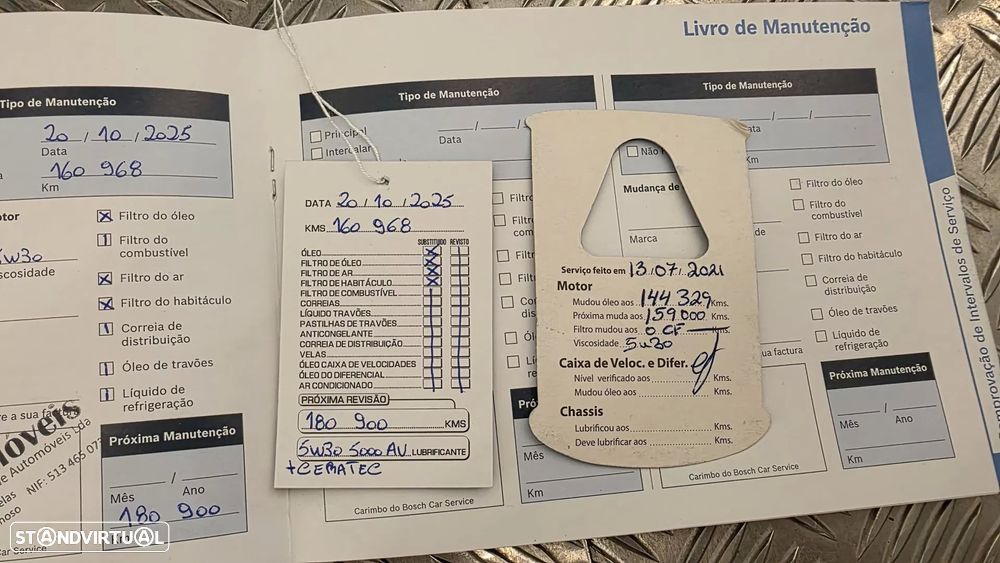 Livro de Manutenção
Tipo de Manutenção
20 / 10 / 2025
Data
160 968
Km
Filtro do óleo
Filtro do
combustível
Filtro do ar
Filtro do habitáculo
Correia de
distribuição
Óleo de travões
Líquido de
refrigeração
5W30
Automóveis Lda
NIF: 513 465 07
Car Service
Próxima Manutenção
Mês / Ano
180 900
STANDVIRTUAL
DATA 20/10/2025
KMS 160 968
SUBSTITUIDO REVISTO
ÓLEO
FILTRO DE ÓLEO
FILTRO DE AR
FILTRO DE HABITÁCULO
FILTRO DE COMBUSTÍVEL
CORREIAS
LÍQUIDO TRAVÕES
PASTILHAS DE TRAVÕES
ANTICONGELANTE
CORREIA DE DISTRIBUIÇÃO
VELAS
ÓLEO CAIXA DE VELOCIDADES
ÓLEO DO DIFERENCIAL
AR CONDICIONADO
PRÓXIMA REVISÃO
180 900 KMS
5W30 5000 AV LUBRIFICANTE
+CEMATEC
Tipo de Manutenção
Principal
Intercalar
Data
Carimbo do Bosch Car Service
Km
Serviço feito em 13/07/2021
Motor
Mudou óleo aos 144 329 Kms.
Próxima muda aos 159.000 Kms.
Filtro mudou aos O CF Kms.
Viscosidade 5W30
Caixa de Veloc. e Difer.
Nível verificado aos Kms.
Mudou óleo aos Kms.
Chassis
Lubrificou aos Kms.
Deve lubrificar aos Kms.
Tipo de Manutenção
Km
Mudança de
Marca
Filtro do óleo
Filtro do
combustível
Filtro do ar
Filtro do habitáculo
Correia de
distribuição
Óleo de travões
Líquido de
refrigeração
ua factura
Próxima Manutenção
Mês / Ano
Km
Carimbo do Bosch Car Service
provação de Intervalos de Serviço